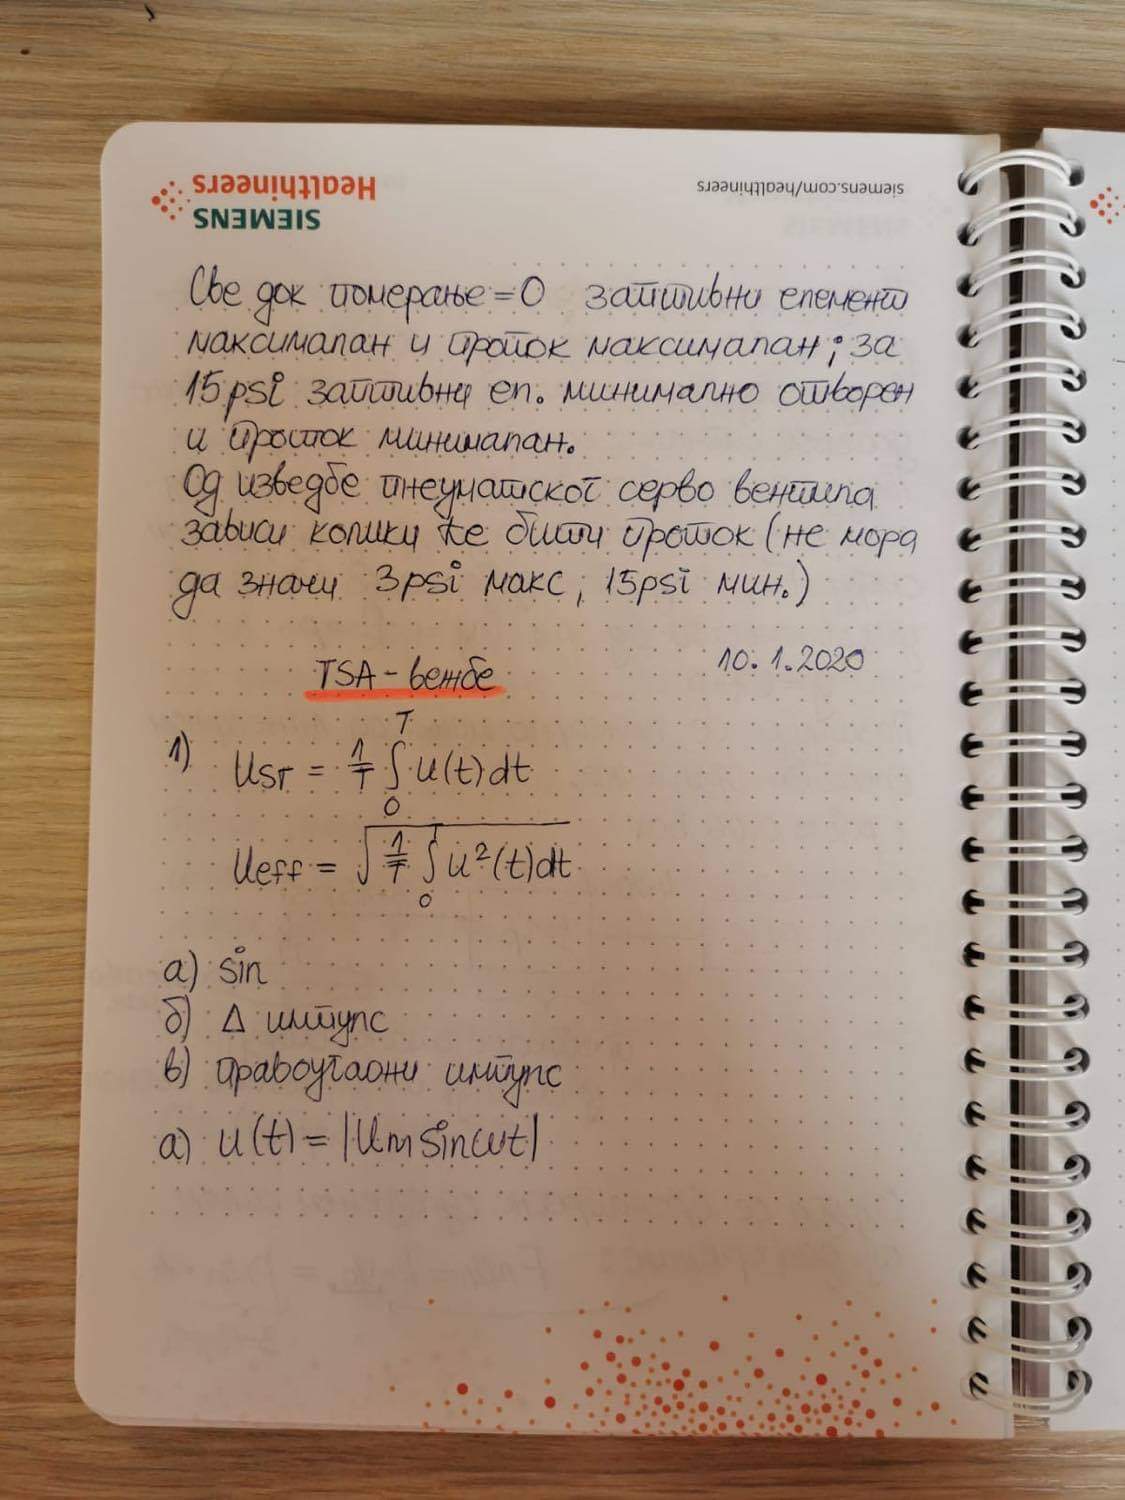 SIEMENS
Healthineers
siemens.com/healthineers
Све док померање = 0 заптивни елемент
максималан и проток максималан; за
15psi заптивни ел. минимално отворен
и проток минималан.
Од изведбе пнеуматског серво вентила
зависи колики ће бити проток (не мора
да значи 3psi макс, 15psi мин.)
10.1.2020
TSA - вежбе
1) Usr = 1/T ∫₀ᵀ u(t)dt
Ueff = √(1/T ∫₀ u²(t)dt)
а) sin
б) Δ импулс
в) правоугаони импулс
а) u(t) = |Um sinωt|